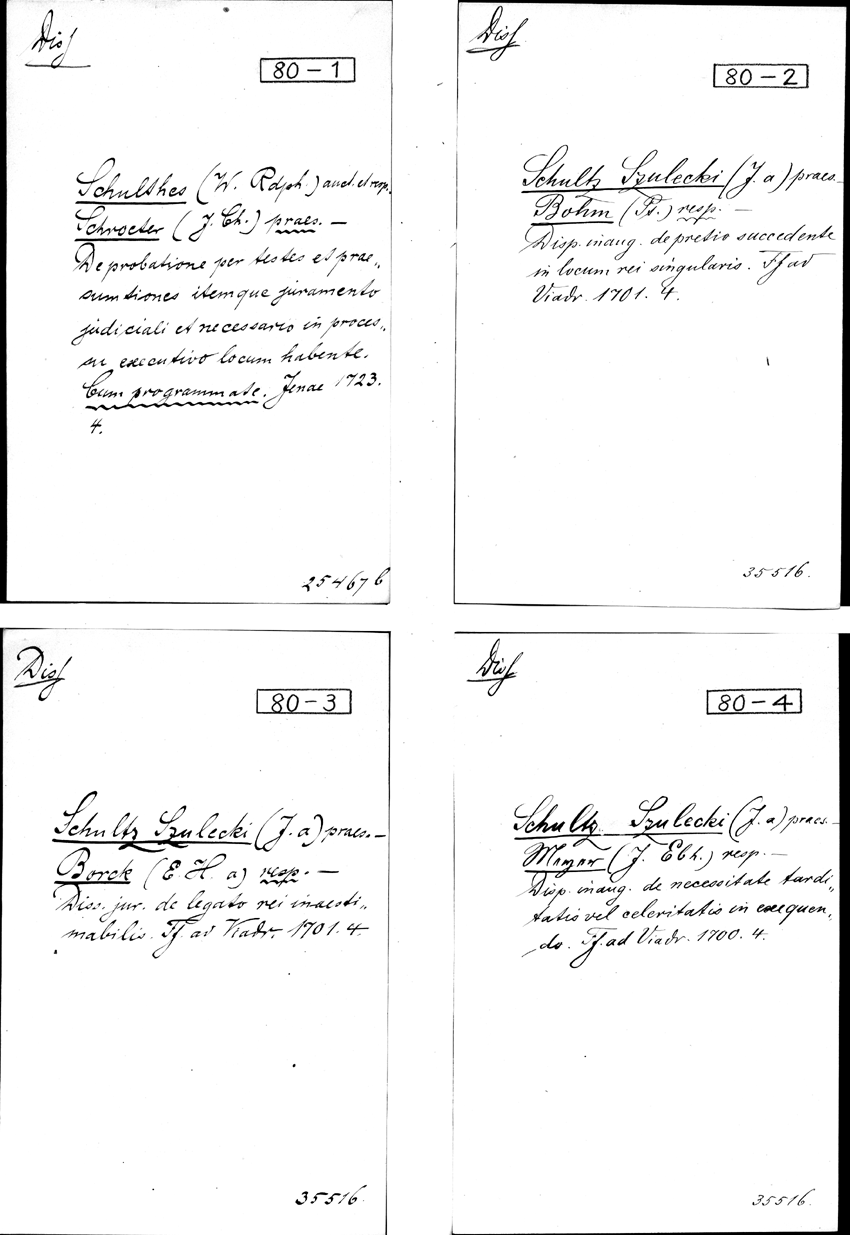 Diss
80-1
Schulthes (W. Rdph.) auct. et resp.
Schroeter (J. Ch.) praes. —
De probatione per testes et prae„
sumtiones itemque juramento
judiciali et necessario in proces„
su executivo locum habente.
Cum programmate. Jenae 1723.
4.
25467 b
Diss
80-2
Schultz Szulecki (J. a) praes. —
Böhm (Ft.) resp. —
Disp. inaug. de pretio succedente
in locum rei singularis. Ff ad
Viadr. 1701. 4.
35516.
Diss
80-3
Schultz Szulecki (J. a) praes. —
Borck (E. H. a) resp. —
Diss. jur. de legato rei inaesti„
mabilis. Ff. av Viadr. 1701. 4
35516.
Diss
80-4
Schultz Szulecki (J. a) praes. —
(J. Ebh.) resp. —
Disp. inaug. de necessitate tardi„
tatis vel celeritatis in exequen„
do. Ff. ad Viadr. 1700. 4.
35516.